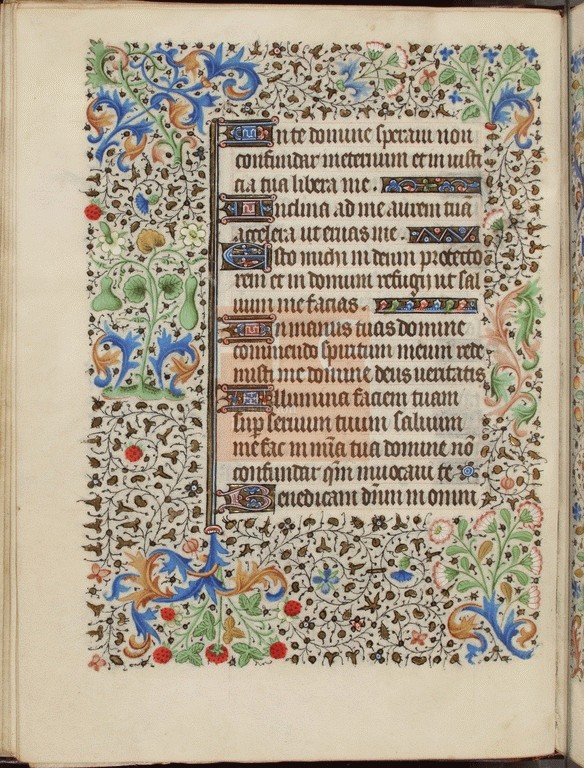 In te domine speraui non
confundar in eternum et in iusti
cia tua libera me.
Inclina ad me aurem tuā
accelera ut eruas me.
Esto michi in deum protecto
rem et in domum refugij ut sal
uum me facias.
In manus tuas domine
commendo spiritum meum rede
misti me domine deus ueritatis
Illumina faciem tuam
sup̄ seruum tuum saluum
me fac in mīa tua domine nō
confundar qm̄ inuocaui te
Benedicam dn̄m in omni